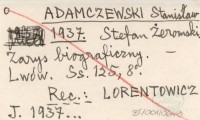 o ADAMCZEWSKI Stanisław
1937. Stefan Żeromski
Zarys biograficzny. –
Lwów. Ss. 125, 8°.
Rec.: LORENTOWICZ
J. 1937...